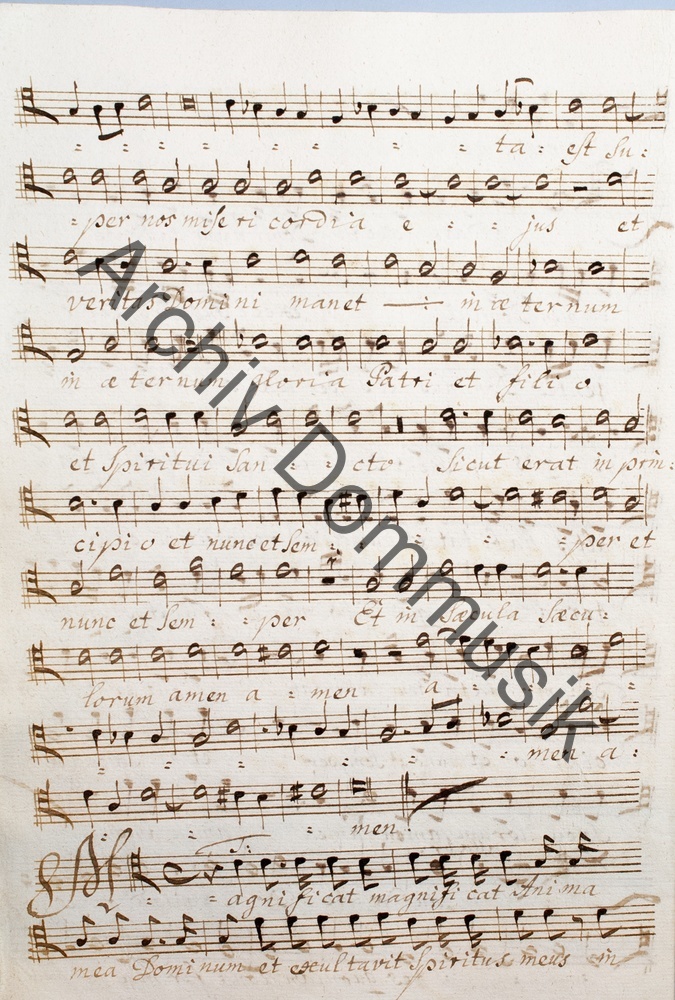 ta est su
per nos miseri cordia e jus et
veritas Domini manet in æ ternum
in æ ternum gloria Patri et filio
et Spiritui San cto Sicut erat in prin
cipio et nunc et sem per et
nunc et sem per Et in sæcula sæcu
lorum amen a men a
men a
men.
M T.
agnificat magnificat Anima
mea Dominum et exultavit spiritus meus in
Archiv Dommusik